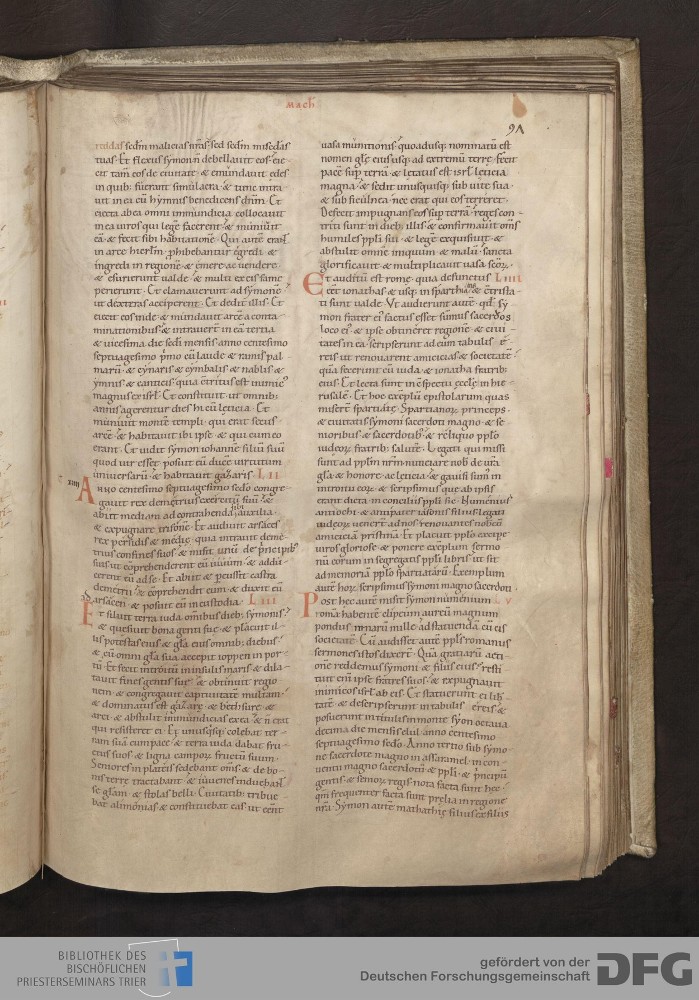 Mach
91
reddas sedm malicias nr̄as· sed sedm misc̄das
tuas· Et flexus symon n̄ debellauit eos· eie
cit tam̄ eos de ciuitate· & emundauit edes
in quib; fuerant simulacra· & tunc intra
uit in ea cū hymnis benedicens dn̄m· Et
eiecta ab ea omni inmundicia collocauit
in ea uiros qui legē facerent· & muniuit
eā· & fecit sibi habitationē· Qui autē erant
in arce hierlm̄ phibebantur egredi &
ingredi in regionē & emere ac uendere
& esurierunt ualde· & multi ex eis fame
perierunt· Et clamauerunt ad symonē
ut dextras acciperent· Et dedit illis· Et
eiecit eos inde· & mundauit arcē a conta
minationibus· & intrauert in eā tertia
& uicesima die scdi mensis· anno centesimo
septuagesimo pmo cū laude & ramis pal
marū· & cynaris & cymbalis & nablis &
ymnis & canticis· quia c̄tritus est inimic'
magnus ex isrl̄· Et constituit ut omnib;
annis agerentur dies hi cū leticia· Et
muniuit montē templi qui erat secus
arcē· & habitauit ibi ipse· & qui cum eo
erant· Et uidit symon iohannē filiū suū
quod uir esset· & posuit eū ducē uirtutum
uniuersarū· & habitauit gazaris· LII
Anno centesimo septuagesimo sedo congre
gauit rex demetrius exercitū suū· &
abiit mediam ad contrahenda sibi auxilia·
& expugnare trifonē· Et audiuit arsaces
rex persidis & medie· quia intrauit deme
trius confines suos· & misit unū de principib'
suis ut cōprehenderent eū uiuum· & addu
cerent eū ad se· Et abiit & p̄cussit castra
demetrii· & cōprehendit eum· & duxit eū
ad arsacen· & posuit eū in custodia· LIII
Et siluit terra iuda omnibus dieb; symonis·
& quesiuit bona genti sue· & placuit il
lis potestas eius & gl̄a eius omnib; diebus·
& cū omni gl̄a sua accepit ioppen in por
tū· Et fecit introitū in insulis maris· & dila
tauit fines gentis sue· & obtinuit regio
nem· & congregauit captiuitatē multam·
& dominatus est gazarę & bethsure &
arci· & abstulit inmundicias ex ea· & n̄ erat
qui resisteret ei· Et unusq̄sq; colebat ter
ram suā cum pace· & terra iuda dabat fru
ctus suos· & ligna camporz fructū suum·
Seniores in plateis sedebant om̄s· & de bo
nis terre tractabant· & iuuenes induebant
se gl̄am· & stolas belli· Ciuitatib; tribue
bat alimonias· & constituebat eas ut eent
uasa munitionis· quoadusq; nominatū est
nomen glę eius usq; ad extremū terre· Fecit
pacē sup terrā· & letatus est isrl̄ leticia
magna· & sedit unusquisq; sub uite sua·
& sub ficulnea· nec erat qui eos terreret·
Defecit impugnans eos sup terrā· reges con
triti sunt in dieb; illis· & confirmauit om̄s
humiles ppl̄i sui· & legē exquisiuit· &
abstulit omnē iniquum & malū· sancta
glorificauit· & multiplicauit uasa sc̄orz·
Et auditū est rome· quia defunctus LIIII
eēt ionathas· & usq; in sparthiatas· & c̄trista
ti sunt ualde· Vt audierunt autē qd sy
mon frater ei' factus esset summus sacerdos
loco ei'· & ipse obtineret regionē· & ciui
tates in ea· scripserunt ad eum tabulis ę
reis· ut renouarent amicicias & societatē·
quā fecerunt cū iuda & ionatha fratrib;
eius· Et lecta sunt in c̄spectu ęcclę in hie
rusalē· Et hoc exēplū epistolarum quas
miserē spartiatę· Spartianorz princeps·
& ciuitates symoni sacerdoti magno· & se
nioribus & sacerdotib;· & reliquo pplo
iudeorz fratrib; salutē· Legati qui missi
sunt ad pplm nr̄m nunciauere nob de ur̄a
gl̄a & honore· ac leticia· & gauisi sum' in
introitu eorz· & scripsimus que ab ipsis
erant dicta in conciliis ppli sic· Humenius
antiochi· & antipater iasonis filius· legati
iudeorz uenerē ad nos renouantes nobcū
amiciciā pristinā· Et placuit pplo excipe
uiros gloriose· & ponere exēplum sermo
nū eorum in segregatis ppli libris· ut sit
ad memoriā pplo spartiatarū· Exemplum
autē horz scripsimus symoni magno sacerdoti·
Post hec autē misit symon numenium LV
romā habentē clipeum aureū magnum
pondus mnarū mille ad statuendā cū eis
societatē· Cū audisset autē ppl̄s romanus
sermones istos· dixerē· Quā gratiarū acti
onē reddemus symoni· & filiis eius· resti
tuit eni ipse fratres suos· & expugnauit
inimicos isrl̄ ab eis· Et statuerunt ei lib
tatē· & descripserunt in tabulis ęreis· &
posuerunt in titulis in monte syon octaua
decima die mensis elul· anno centesimo
septuagesimo scdo· Anno tertio sub symo
ne sacerdote magno in assaramel· in con
uentu magno sacerdotū & ppli· & p̄ncipū
gentis· & seniorz regis· nota facta sunt hec·
qm̄ frequenter facta sunt prelia in regione
nr̄a· Symon autē mathathię filius ex filiis
BIBLIOTHEK DES
BISCHÖFLICHEN
PRIESTERSEMINARS TRIER
gefördert von der
Deutschen Forschungsgemeinschaft
DFG